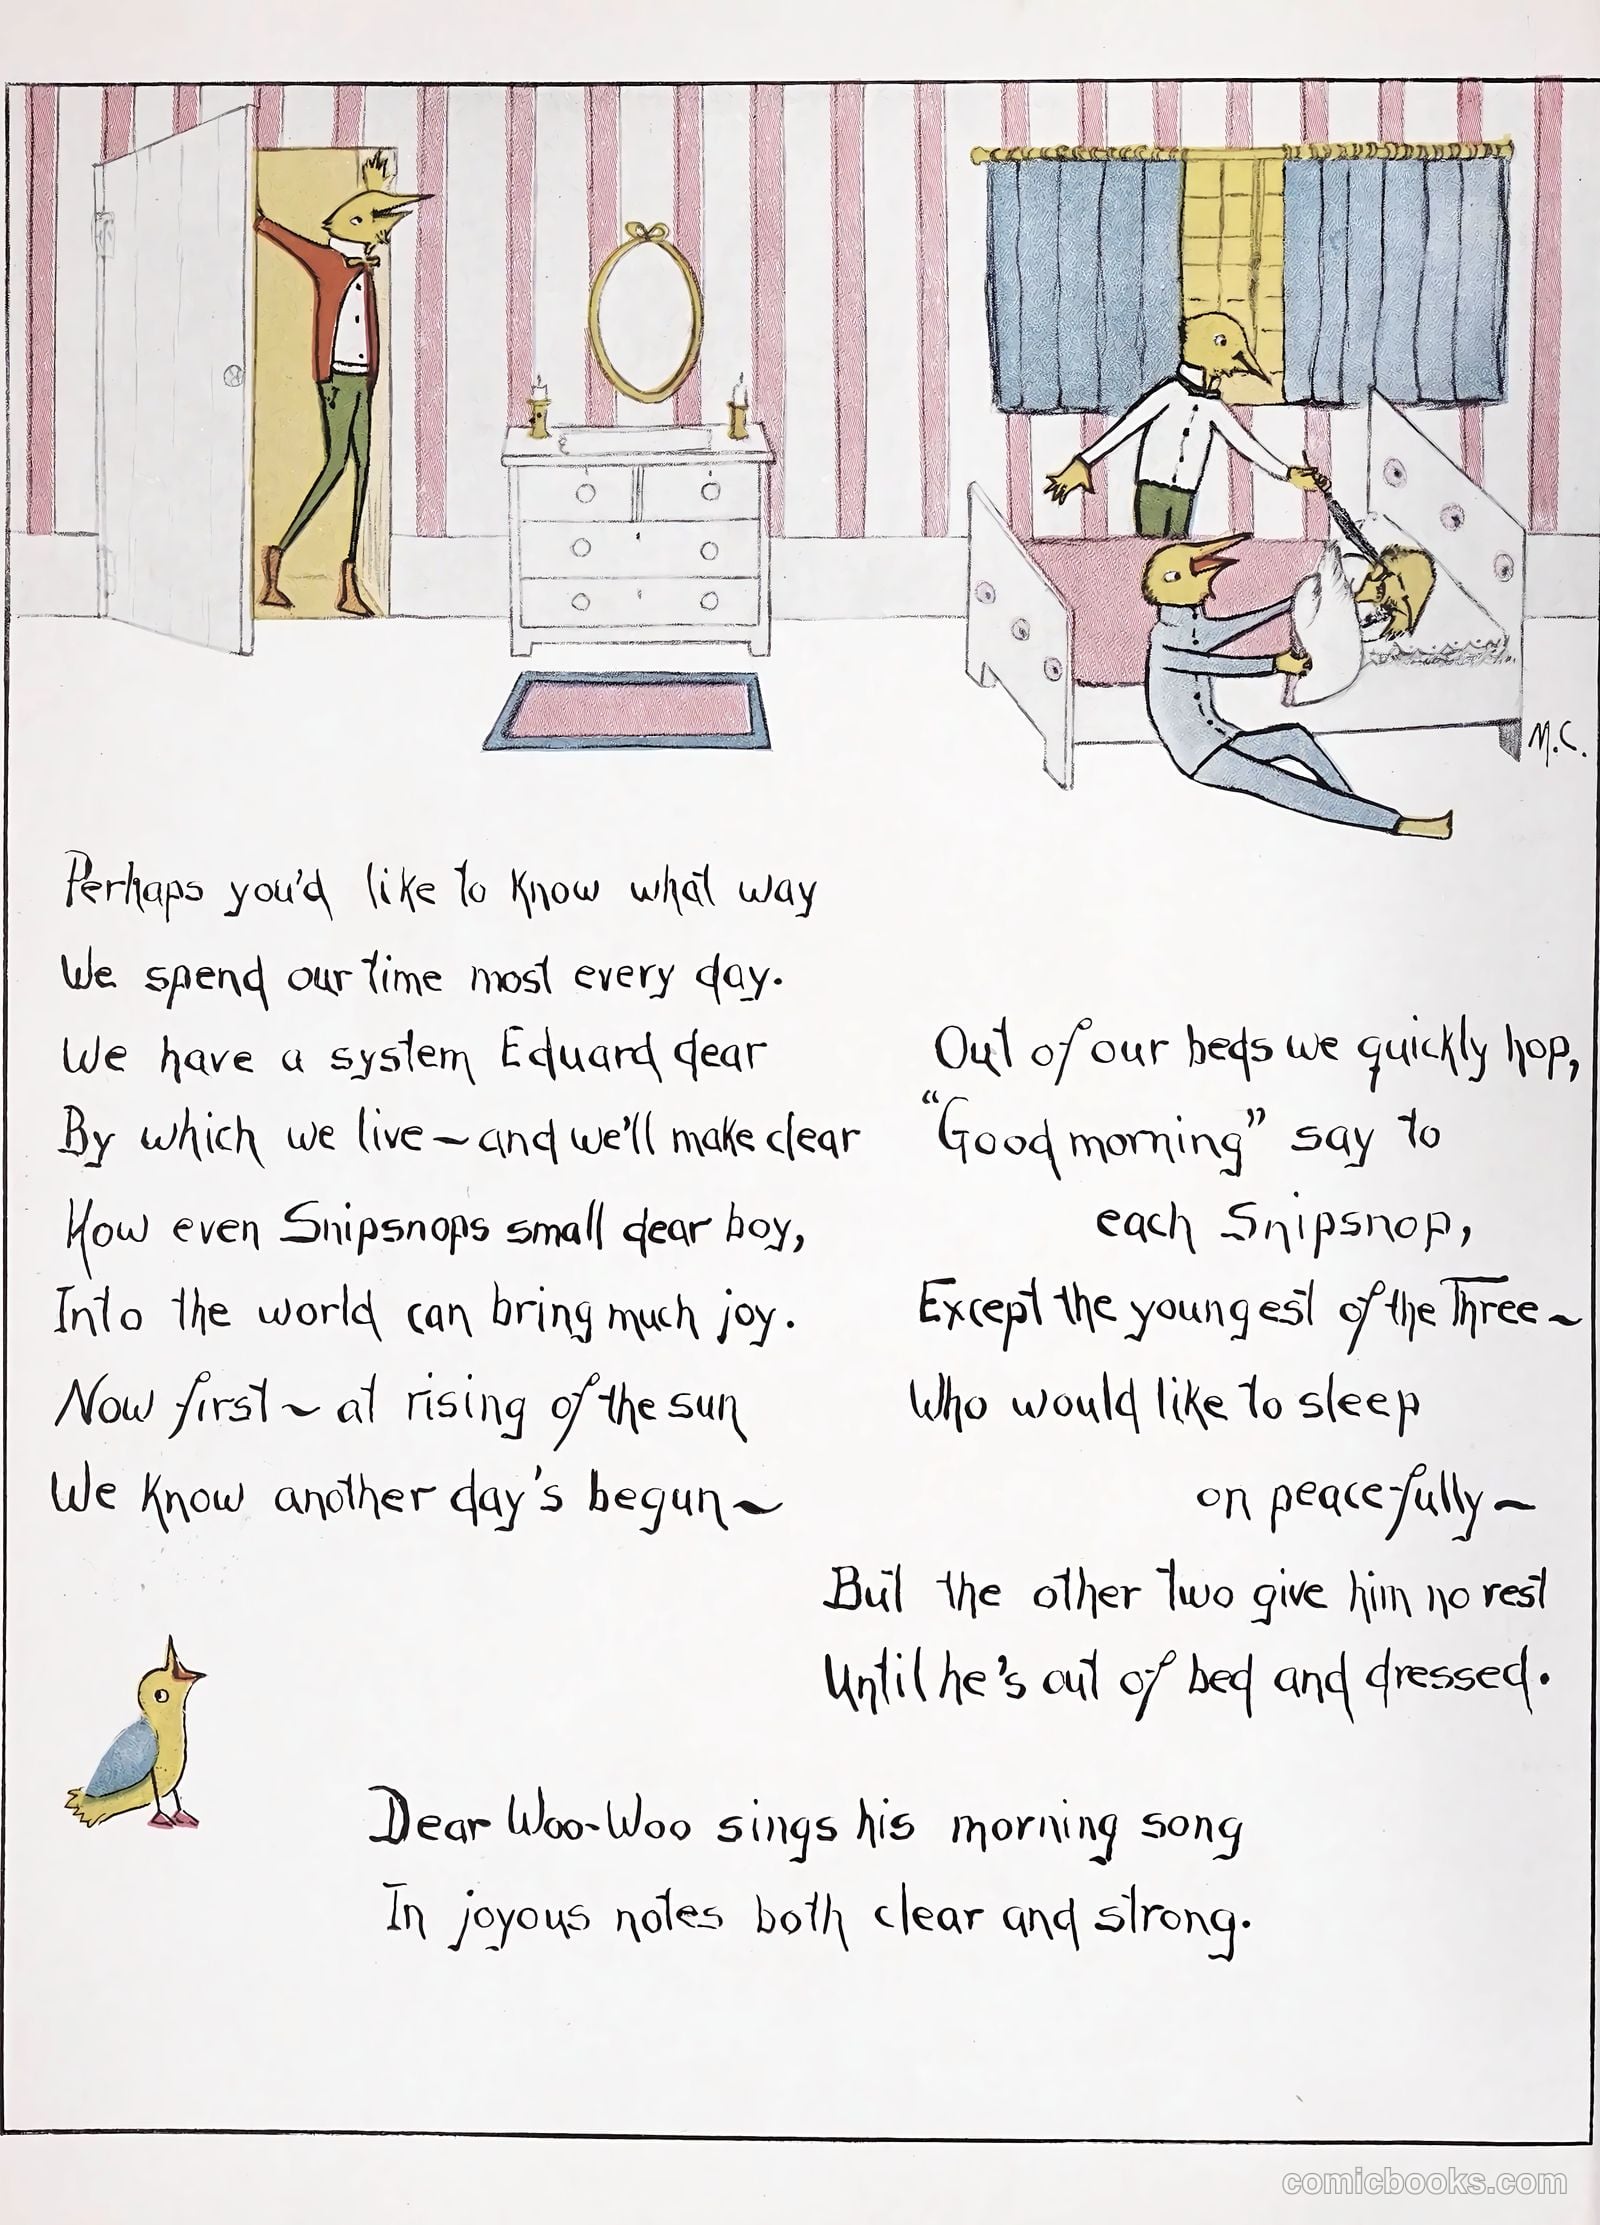 M.C.
Perhaps you'd like to know what way
We spend our time most every day.
We have a system Eduard dear
By which we live~and we'll make clear
How even Snipsnops small dear boy,
Into the world can bring much joy.
Now first~at rising of the sun
We know another day's begun~
Out of our beds we quickly hop,
"Good morning" say to
each Snipsnop,
Except the youngest of the Three~
Who would like to sleep
on peacefully~
But the other two give him no rest
Until he's out of bed and dressed.
Dear Woo-Woo sings his morning song
In joyous notes both clear and strong.
comicbooks.com